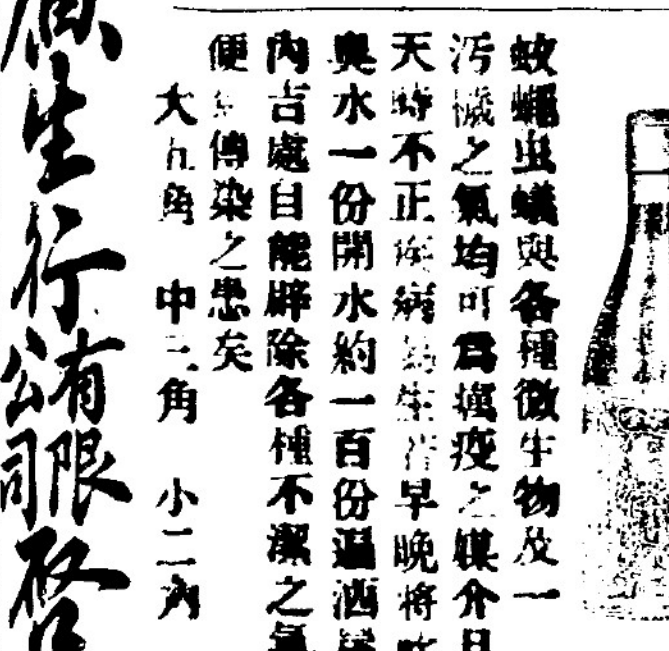 蚊蠅虫蟻與各種微生物及一
污濊之氣均可為瘟疫之媒介
天時不正疾病易生 早晚將
與水一份開水約一百份溫洒
內吉處自能辟除各種不潔之氣
便無傳染之患矣
大五角 中三角 小二角
生行有限公司啓